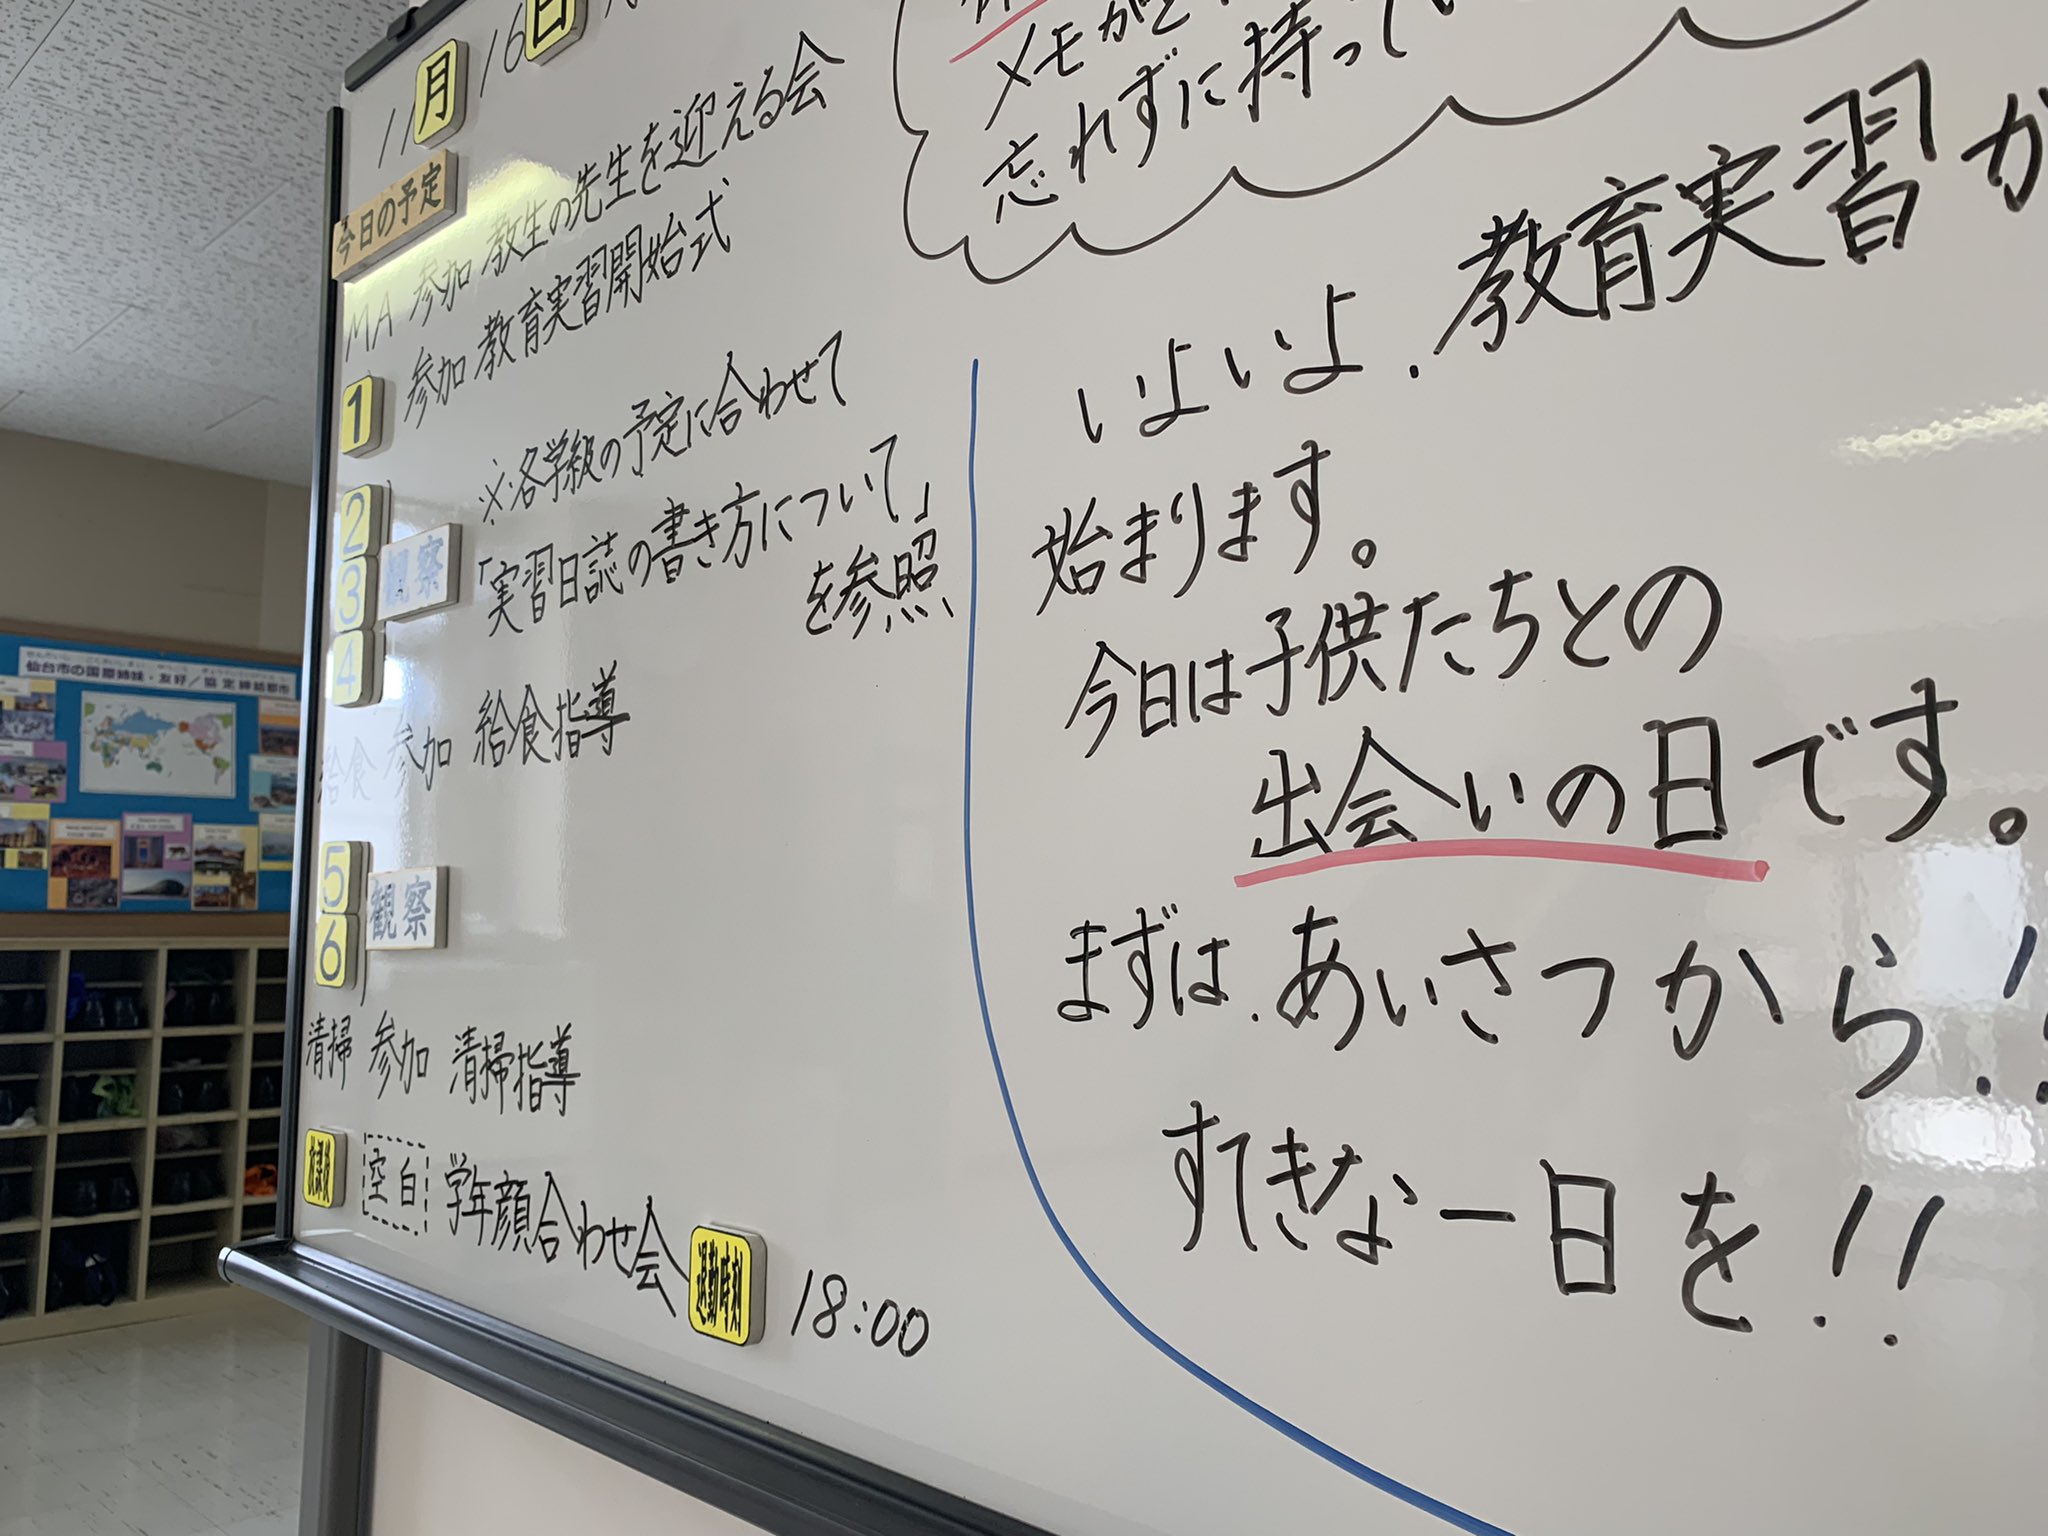 11月16日
今日の予定
MA 参加 教生の先生を迎える会
1 参加 教育実習開始式
2
3 観察
4
※各学級の予定に合わせて
「実習日誌の書き方について」
を参照
給食 参加 給食指導
5 観察
6
清掃 参加 清掃指導
放課後 空白 学年顔合わせ会
退勤時刻 18:00
メモが
忘れずに持って
いよいよ、教育実習が
始まります。
今日は子供たちとの
出会いの日です。
まずは、あいさつから!!
すてきな一日を!!
仙台市の国際姉妹・友好/協定締結都市